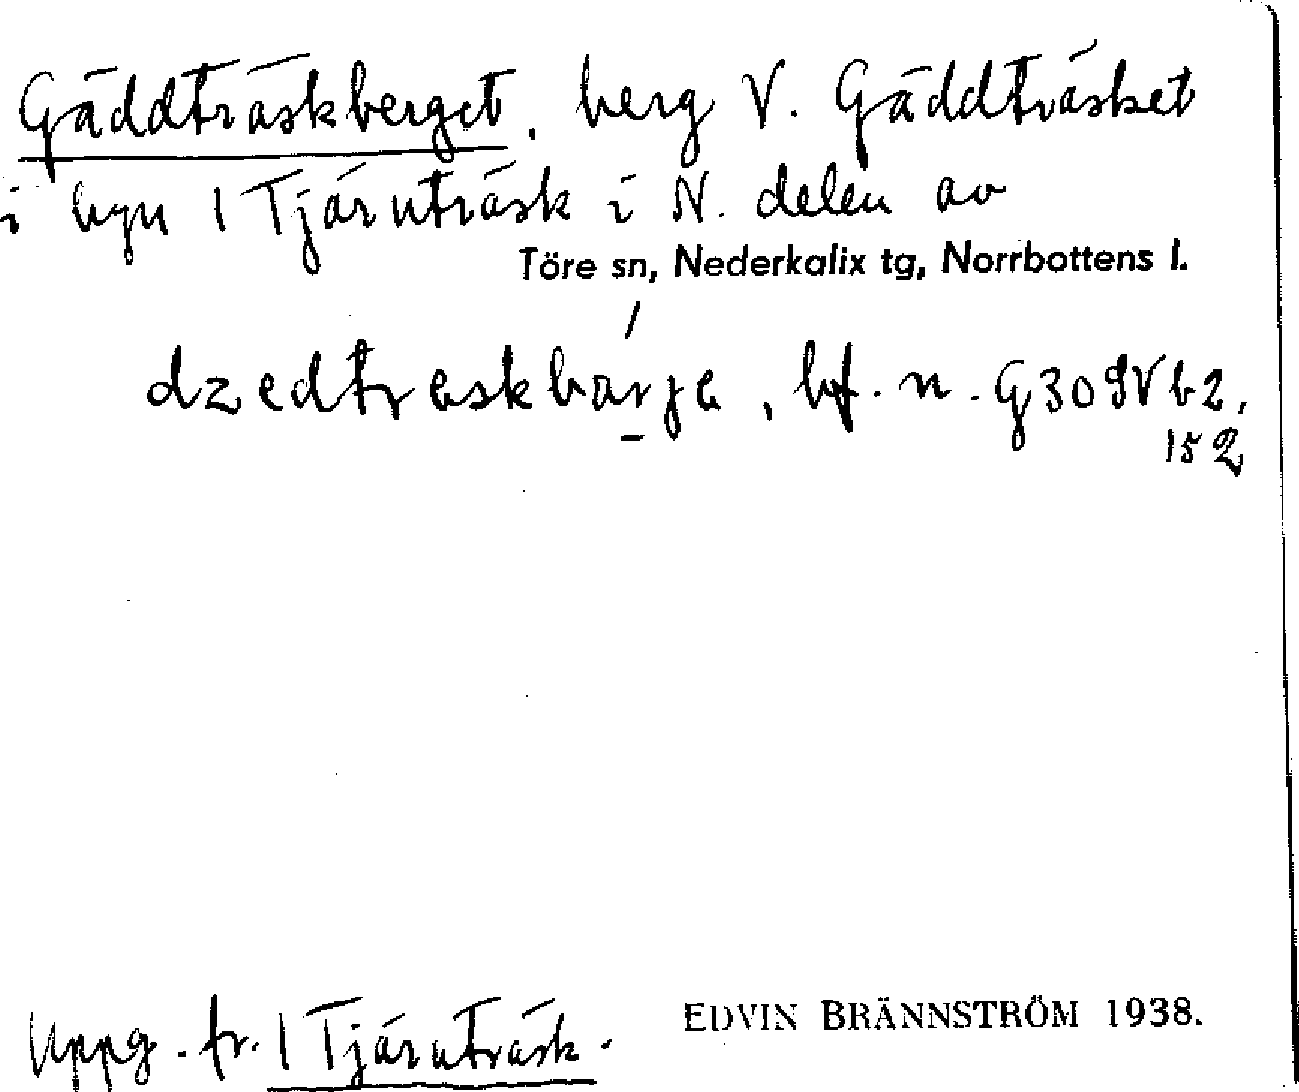 Gäddträskberget, berg V. Gäddträsket
i byn 1 Tjärnträsk i N. delen av
Töre sn, Nederkalix tg, Norrbottens l.
dzedtraskbarja, bf. n. G309Vb2,
152
Uppg. fr. 1 Tjärnträsk. EDVIN BRÄNNSTRÖM 1938.